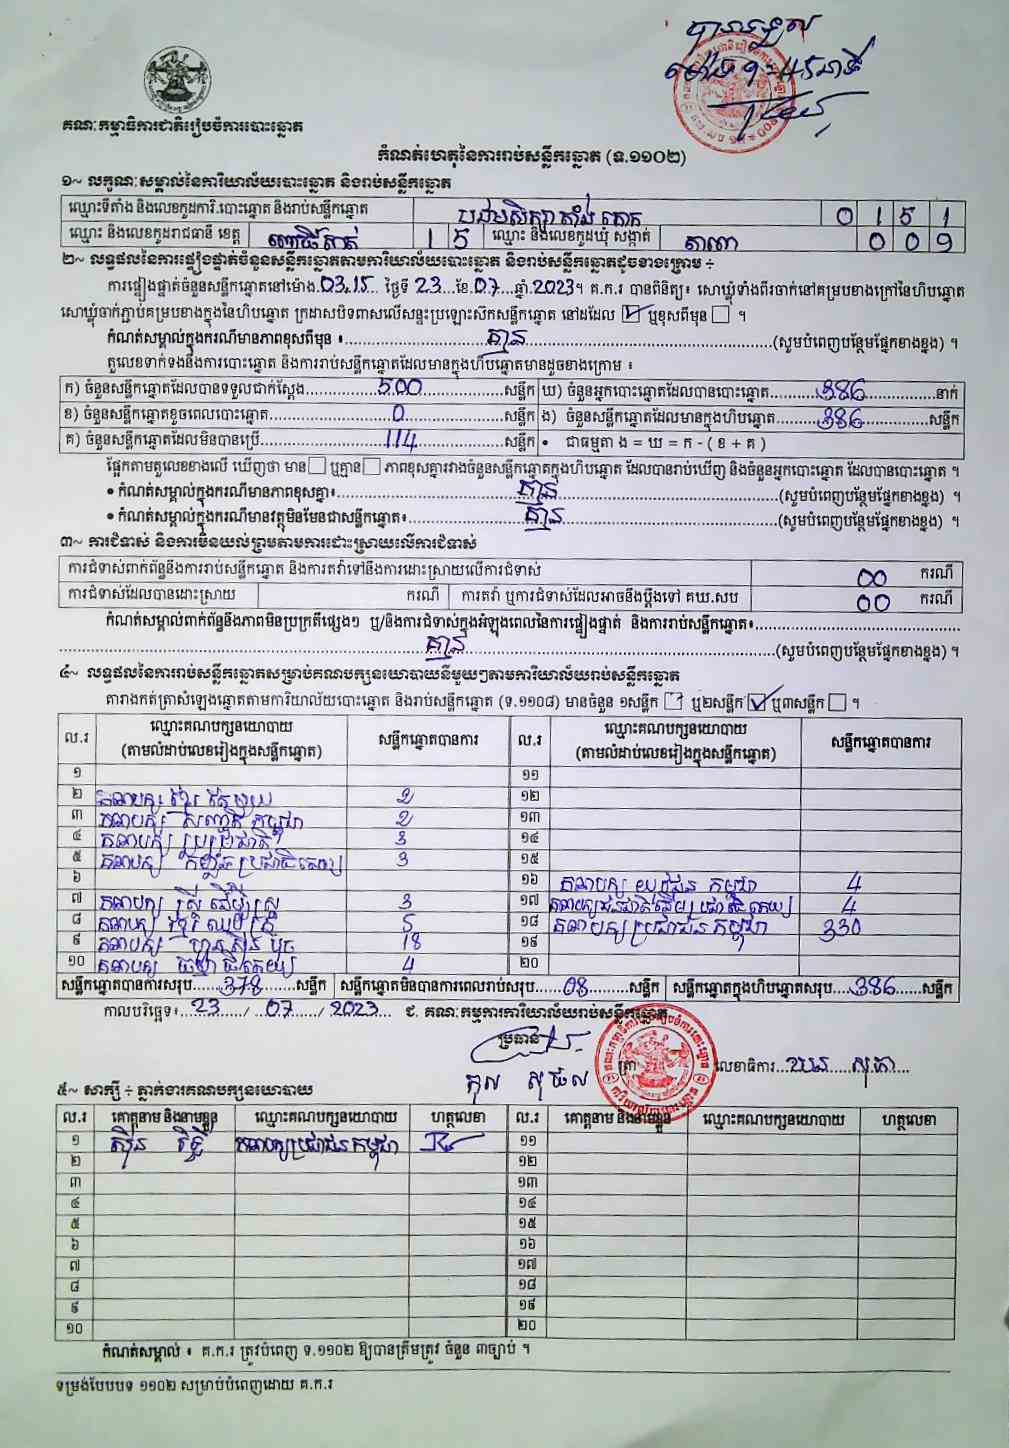 បានទទួល
ម៉ោង ១-៤៥នាទី
គណៈកម្មាធិការជាតិរៀបចំការបោះឆ្នោត
កំណត់ហេតុនៃការរាប់សន្លឹកឆ្នោត (ទ.១១០២)
១~ លក្ខណៈសម្គាល់នៃការិយាល័យបោះឆ្នោត និងរាប់សន្លឹកឆ្នោត
ឈ្មោះទីតាំង និងលេខកូដការិ.បោះឆ្នោត និងរាប់សន្លឹកឆ្នោត បឋមសិក្សា តាំងគោក 0 1 5 1
ឈ្មោះ និងលេខកូដរាជធានី ខេត្ត ពោធិ៍សាត់ 1 5 ឈ្មោះ និងលេខកូដឃុំ សង្កាត់ 0 0 9
២~ លទ្ធផលនៃការផ្ទៀងផ្ទាត់ចំនួនសន្លឹកឆ្នោតតាមការិយាល័យបោះឆ្នោត និងរាប់សន្លឹកឆ្នោតដូចខាងក្រោម ÷
ការផ្ទៀងផ្ទាត់ចំនួនសន្លឹកឆ្នោតនៅម៉ោង.03.15... ថ្ងៃទី 23...ខែ.07....ឆ្នាំ.2023។ គ.ក.រ បានពិនិត្យ៖ សោឃ្លុំទាំងពីរចាក់នៅគម្របខាងក្រៅនៃហិបឆ្នោត
សោឃ្លុំចាក់ភ្ជាប់គម្របខាងក្នុងនៃហិបឆ្នោត ក្រដាសបិទពាសលើសន្ទះប្រឡោះសឹកសន្លឹកឆ្នោត នៅដដែល ☑ ឬខុសពីមុន ☐ ។
កំណត់សម្គាល់ក្នុងករណីមានភាពខុសពីមុន ៖ គ្មាន (សូមបំពេញបន្ថែមផ្នែកខាងខ្នង) ។
តួលេខទាក់ទងនឹងការបោះឆ្នោត និងការរាប់សន្លឹកឆ្នោតដែលមានក្នុងហិបឆ្នោតមានដូចខាងក្រោម ៖
ក) ចំនួនសន្លឹកឆ្នោតដែលបានទទួលជាក់ស្តែង 500 សន្លឹក ឃ) ចំនួនអ្នកបោះឆ្នោតដែលបានបោះឆ្នោត 386 នាក់
ខ) ចំនួនសន្លឹកឆ្នោតខូចពេលបោះឆ្នោត 0 សន្លឹក ង) ចំនួនសន្លឹកឆ្នោតដែលមានក្នុងហិបឆ្នោត 386 សន្លឹក
គ) ចំនួនសន្លឹកឆ្នោតដែលមិនបានប្រើ 114 សន្លឹក • ជាធម្មតា ង = ឃ = ក - ( ខ + គ )
ផ្អែកតាមតួលេខខាងលើ ឃើញថា មាន ☐ ឬគ្មាន ☐ ភាពខុសគ្នារវាងចំនួនសន្លឹកឆ្នោតក្នុងហិបឆ្នោត ដែលបានរាប់ឃើញ និងចំនួនអ្នកបោះឆ្នោត ដែលបានបោះឆ្នោត ។
• កំណត់សម្គាល់ក្នុងករណីមានភាពខុសគ្នា៖ គ្មាន (សូមបំពេញបន្ថែមផ្នែកខាងខ្នង) ។
• កំណត់សម្គាល់ក្នុងករណីមានវត្ថុមិនមែនជាសន្លឹកឆ្នោត៖ គ្មាន (សូមបំពេញបន្ថែមផ្នែកខាងខ្នង) ។
៣~ ការជំទាស់ និងការមិនយល់ព្រមតាមការដោះស្រាយលើការជំទាស់
ការជំទាស់ពាក់ព័ន្ធនឹងការរាប់សន្លឹកឆ្នោត និងការតវ៉ាទៅនឹងការដោះស្រាយលើការជំទាស់ 00 ករណី
ការជំទាស់ដែលបានដោះស្រាយ ករណី ការតវ៉ា ឬការជំទាស់ដែលអាចនឹងប្តឹងទៅ គឃ.សប 00 ករណី
កំណត់សម្គាល់ពាក់ព័ន្ធនឹងភាពមិនប្រក្រតីផ្សេងៗ ឬ/និងការជំទាស់ក្នុងអំឡុងពេលនៃការផ្ទៀងផ្ទាត់ និងការរាប់សន្លឹកឆ្នោត៖
គ្មាន (សូមបំពេញបន្ថែមផ្នែកខាងខ្នង) ។
៤~ លទ្ធផលនៃការរាប់សន្លឹកឆ្នោតសម្រាប់គណបក្សនយោបាយនីមួយៗតាមការិយាល័យរាប់សន្លឹកឆ្នោត
តារាងកត់ត្រាសំឡេងឆ្នោតតាមការិយាល័យបោះឆ្នោត និងរាប់សន្លឹកឆ្នោត (ទ.១១០៨) មានចំនួន ១សន្លឹក ☐ ឬ២សន្លឹក ☑ ឬ៣សន្លឹក ☐ ។
ល.រ ឈ្មោះគណបក្សនយោបាយ (តាមលំដាប់លេខរៀងក្នុងសន្លឹកឆ្នោត) សន្លឹកឆ្នោតបានការ ល.រ ឈ្មោះគណបក្សនយោបាយ (តាមលំដាប់លេខរៀងក្នុងសន្លឹកឆ្នោត) សន្លឹកឆ្នោតបានការ
១ ១១
២ គណបក្ស ខ្មែរ តែមួយ 2 ១២
៣ គណបក្ស សញ្ជាតិ កម្ពុជា 2 ១៣
៤ គណបក្ស 3 ១៤
៥ គណបក្ស កម្លាំង ប្រជាធិបតេយ្យ 3 ១៥
៦ ១៦ គណបក្ស យុវជន កម្ពុជា 4
៧ គណបក្ស ស្ត្រី ដើម្បីស្ត្រី 3 ១៧ 4
៨ គណបក្ស 5 ១៨ គណបក្សប្រជាជនកម្ពុជា 330
៩ គណបក្ស ហ្វុនស៊ិនប៉ិច 18 ១៩
១០ គណបក្ស ធម្មាធិបតេយ្យ 4 ២០
សន្លឹកឆ្នោតបានការសរុប 378 សន្លឹក សន្លឹកឆ្នោតមិនបានការពេលរាប់សរុប 08 សន្លឹក សន្លឹកឆ្នោតក្នុងហិបឆ្នោតសរុប 386 សន្លឹក
កាលបរិច្ឆេទ៖ 23 / 07 / 2023 ជ. គណៈកម្មការការិយាល័យរាប់សន្លឹកឆ្នោត
ប្រធាន
ត្រា លេខាធិការ
៥~ សាក្សី ÷ ភ្នាក់ងារគណបក្សនយោបាយ
ល.រ គោត្តនាម និងនាមខ្លួន ឈ្មោះគណបក្សនយោបាយ ហត្ថលេខា ល.រ គោត្តនាម និងនាមខ្លួន ឈ្មោះគណបក្សនយោបាយ ហត្ថលេខា
១ ស៊ិន រិទ្ធី គណបក្សប្រជាជនកម្ពុជា ១១
២ ១២
៣ ១៣
៤ ១៤
៥ ១៥
៦ ១៦
៧ ១៧
៨ ១៨
៩ ១៩
១០ ២០
កំណត់សម្គាល់ ៖ គ.ក.រ ត្រូវបំពេញ ទ.១១០២ ឱ្យបានត្រឹមត្រូវ ចំនួន ៣ច្បាប់ ។
ទម្រង់បែបបទ ១១០២ សម្រាប់បំពេញដោយ គ.ក.រ